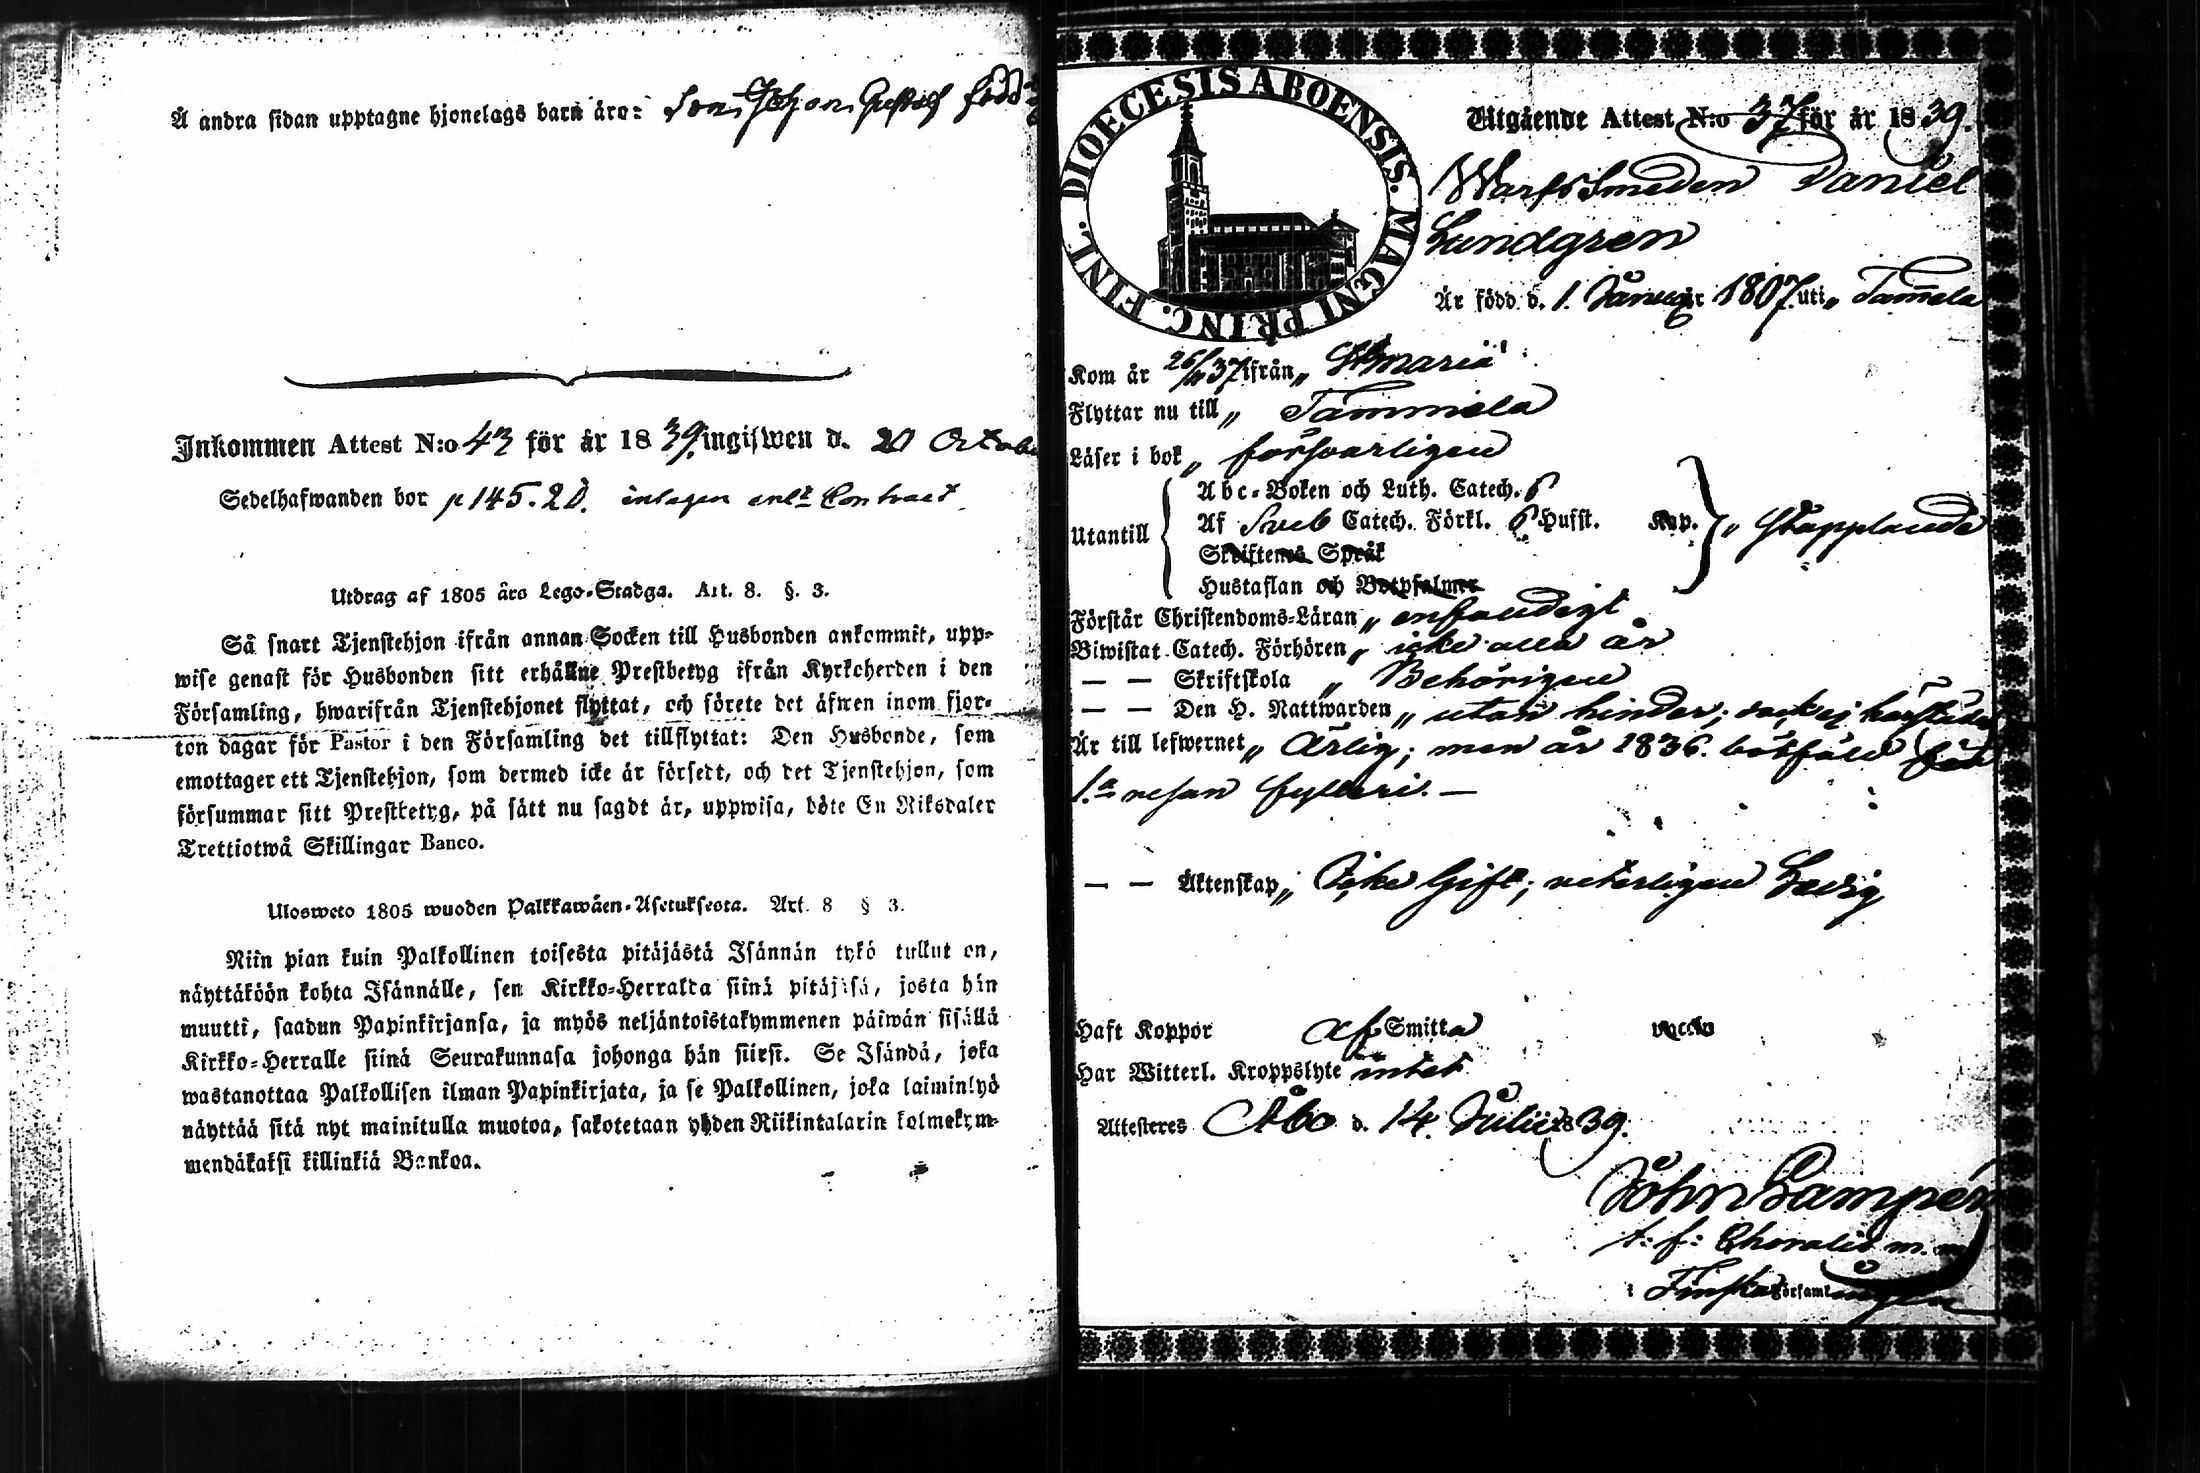 Å andra sidan upptagne hjonelags barn äro: Son Johan Gustaf född
Inkommen Attest N:o 43 för år 1839, ingifwen d. 20 Octob
Sedelhafwanden bor p 145. 20. intagen enlt Contract
Utdrag af 1805 års Lego-Stadga. Art. 8. §. 3.
Så snart Tjenstehjon ifrån annan Socken till Husbonden ankommit, upp-
wise genast för Husbonden sitt erhållne Prestbetyg ifrån Kyrkoherden i den
Församling, hwarifrån Tjenstehjonet flyttat, och förete det äfwen inom fjor-
ton dagar för Pastor i den Församling det tillflyttat: Den Husbonde, som
emottager ett Tjenstehjon, som dermed icke är försedt, och det Tjenstehjon, som
försummar sitt Prestbetyg, på sätt nu sagdt är, uppwisa, böte En Riksdaler
Trettiotwå Skillingar Banco.
Ulosweto 1805 wuoden Palkkawäen-Asetuksesta. Art. 8 § 3.
Niin pian kuin Palkollinen toisesta pitäjästä Isännän tykö tullut on,
näyttäköön kohta Isännälle, sen Kirkko-Herralta siinä pitäjäsä, josta hän
muutti, saadun Papinkirjansa, ja myös neljäntoistakymmenen päiwän sisällä
Kirkko-Herralle siinä Seurakunnasa johonga hän siirsi. Se Isändä, joka
wastanottaa Palkollisen ilman Papinkirjata, ja se Palkollinen, joka laiminlyö
näyttää sitä nyt mainitulla muotoa, sakotetaan yhden Riikintalarin kolmekym-
mendäkaksi killinkiä Bankoa.
DIOECESIS ABOENSIS. MAGNI PRINC. FINL.
Utgående Attest N:o 37 för år 1839.
Warfssmeden Daniel
Lundgren
Är född d. 1. Januar år 1807. uti „ Tammela
Kom år 26/11 37 ifrån „ St Mariä
Flyttar nu till „ Tammela
Läser i bok „ försvarligen
Utantill
Abc-Boken och Luth. Catech. 6
Af Sveb Catech. Förkl. 6 Hufst. Kap. „ Stapplande
Skriftens Språk
Hustaflan och Botpsalmer
Förstår Christendoms-Läran „ enfaldigt
Biwistat Catech. Förhören „ icke alla år
— — Skriftskola „ Behörigen
— — Den H. Nattwarden „ utan hinder; dock ej härstädes
Är till lefwernet „ Ärlig; men år 1836. bötfäld för
1.a resan fylleri. —
— — Äktenskap „ Icke Gift; veterligen Ledig
Haft Koppor af Smitta vaccin
Har Witterl. Kroppslyte intet
Attesteres Åbo d. 14. Julii 1839.
John Lampén
t: f: Choralis m. m
i Finska Församlingen